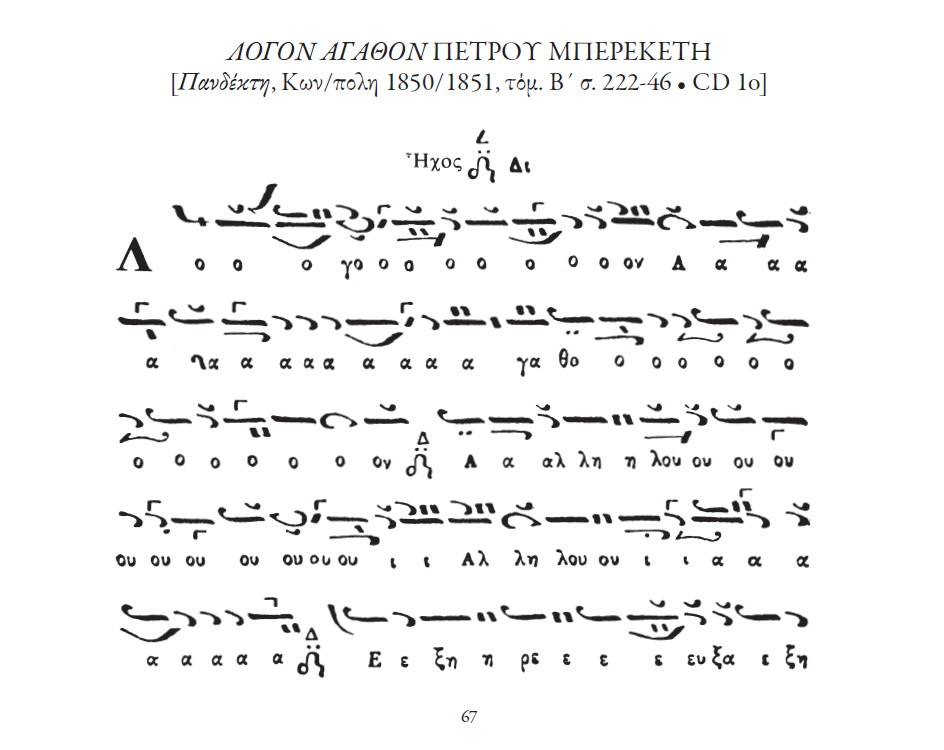 ΛΟΓΟΝ ΑΓΑΘΟΝ ΠΕΤΡΟΥ ΜΠΕΡΕΚΕΤΗ
[Πανδέκτη, Κων/πολη 1850/1851, τόμ. Β΄ σ. 222-46 • CD 1ο]
Ἦχος Δι
Λ ο ο ο γο ο ο ο ο ο ο ο ον Α α α α
α α α α α α α α α α γα θο ο ο ο ο ο ο
ο ο ο ο ο ο ον Δ Α α αλ λη η λου ου ου ου
ου ου ου ου ου ου ου ι ι Αλ λη λου ου ι ι α α α
α α α α α Δ Ε ε ξη η ρε ε ε ε ευ ξα ε ξη
67